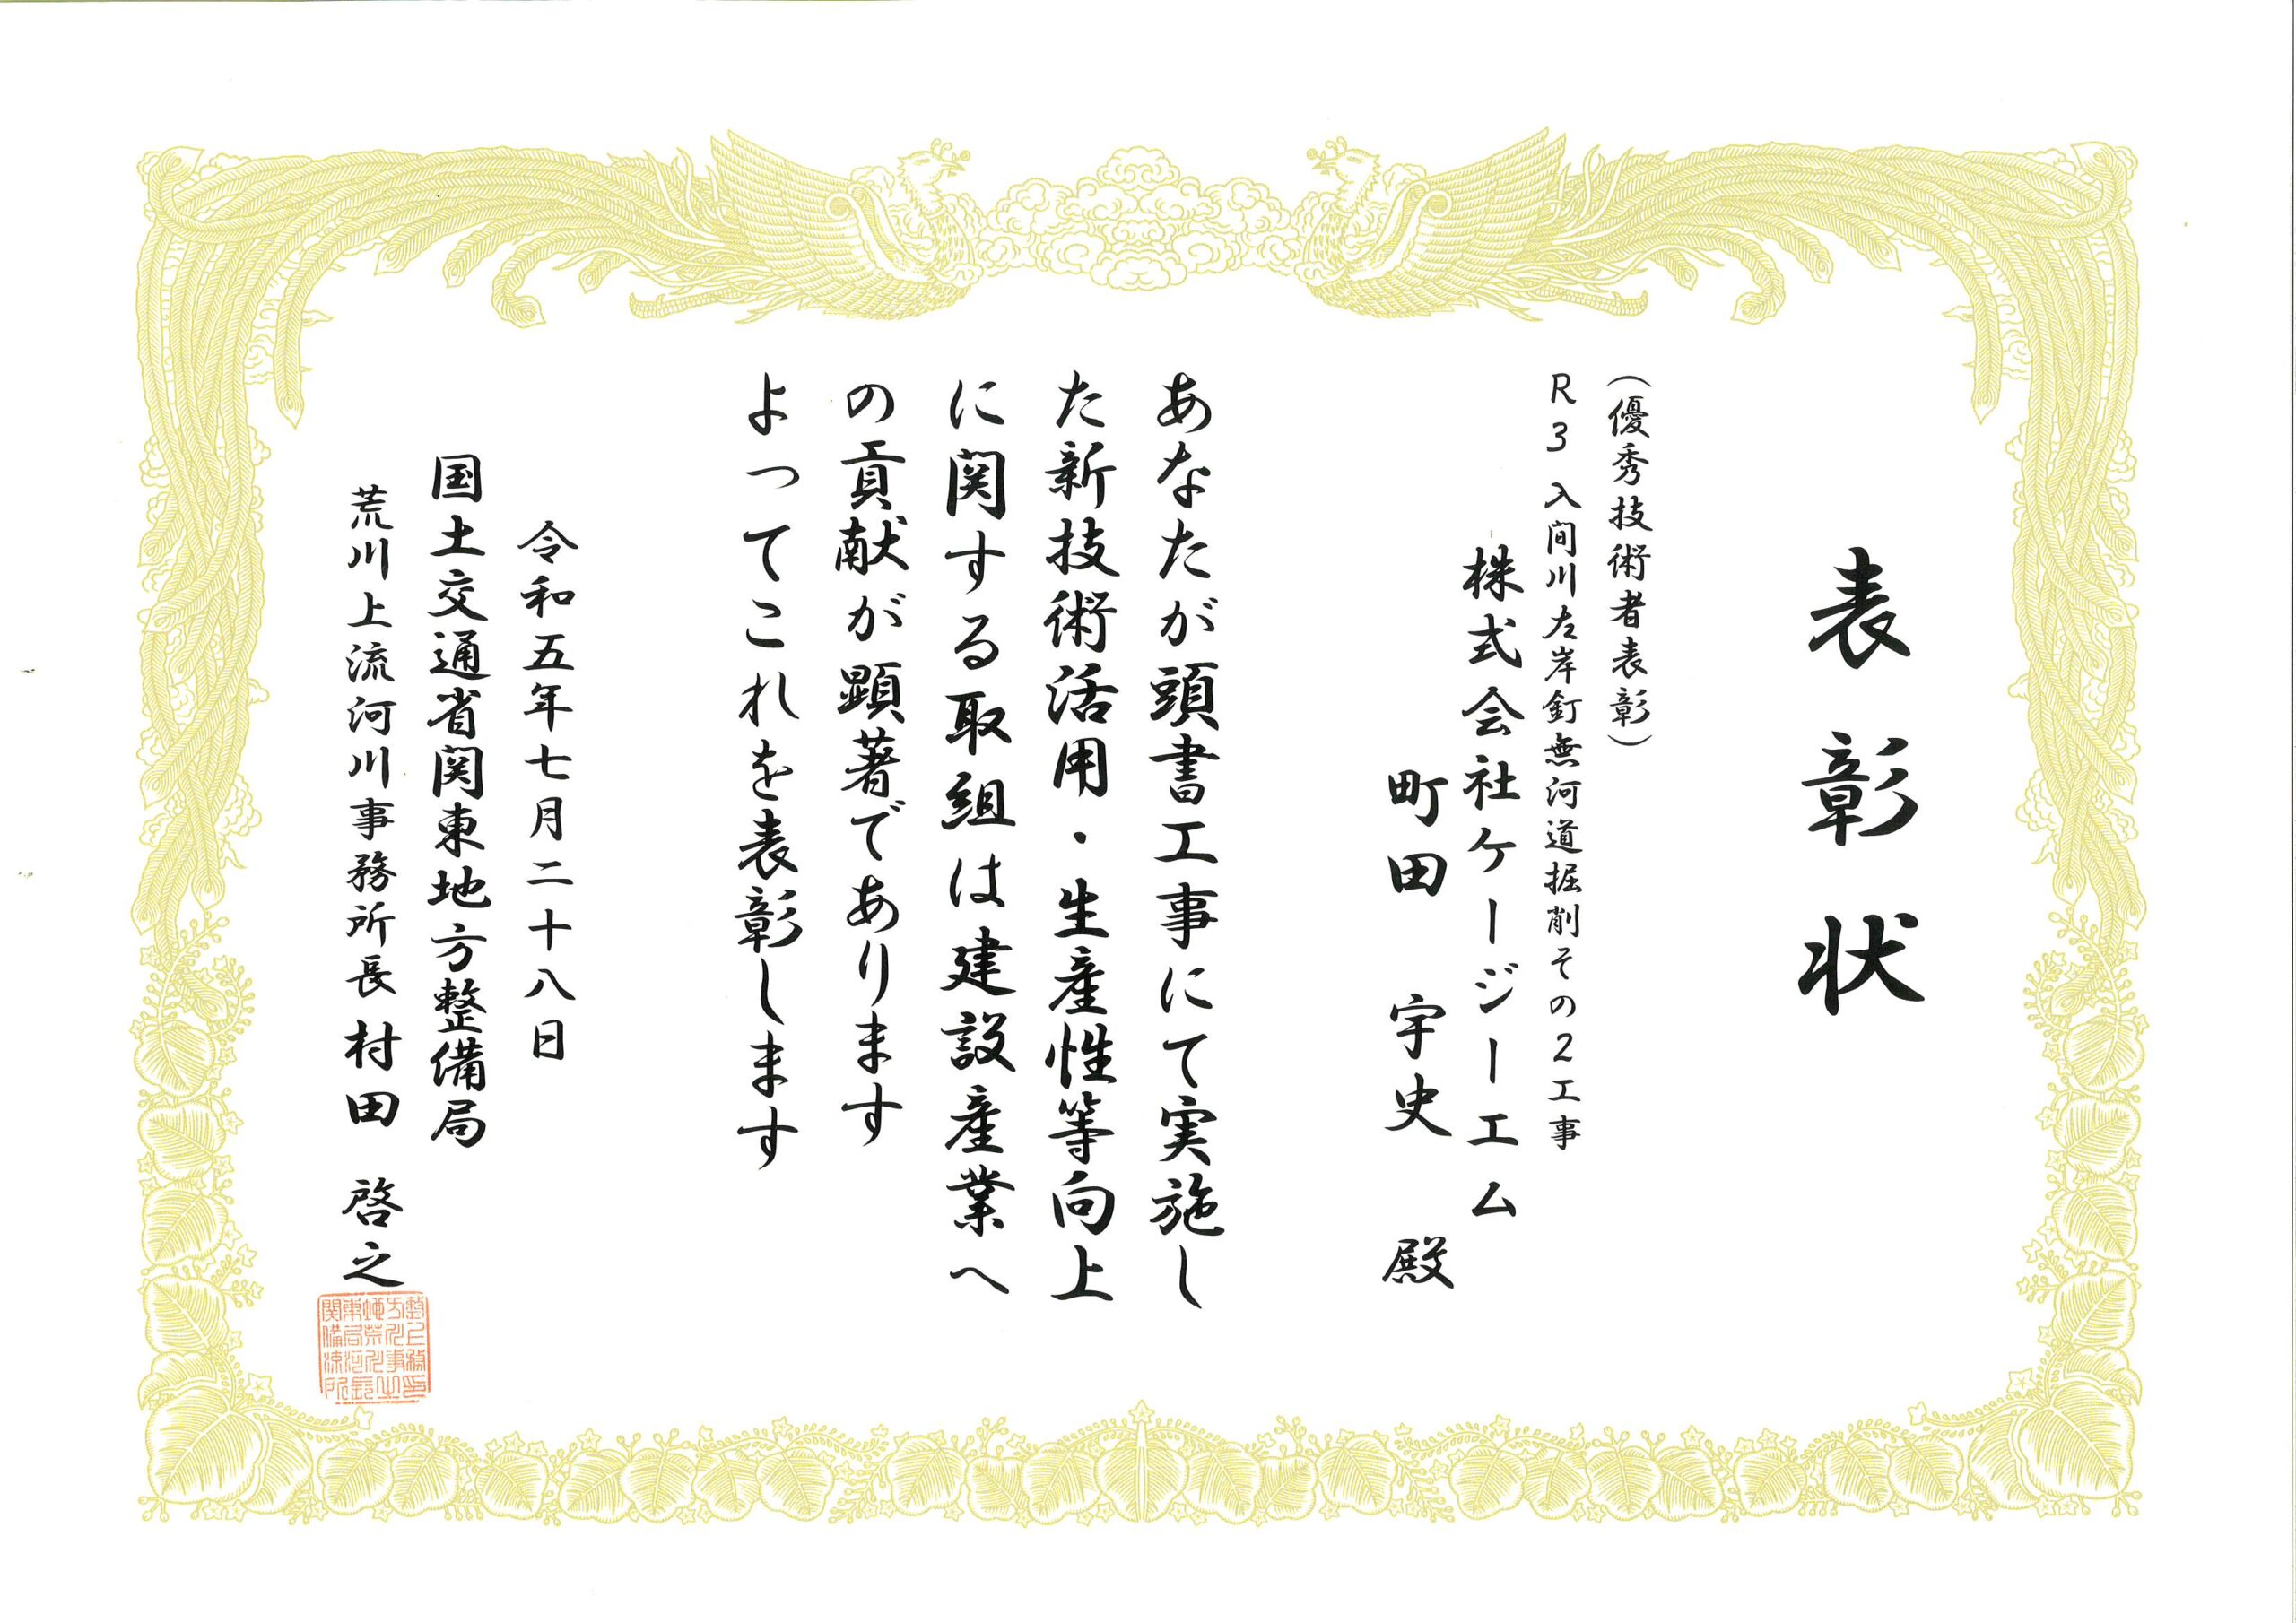 表彰状
（優秀技術者表彰）
R3 入間川左岸釘無河道掘削その2工事
株式会社ケージーエム
町田 宇史 殿
あなたが頭書工事にて実施し
た新技術活用・生産性等向上
に関する取組は建設産業へ
の貢献が顕著であります
よってこれを表彰します
令和五年七月二十八日
国土交通省関東地方整備局
荒川上流河川事務所長 村田 啓之